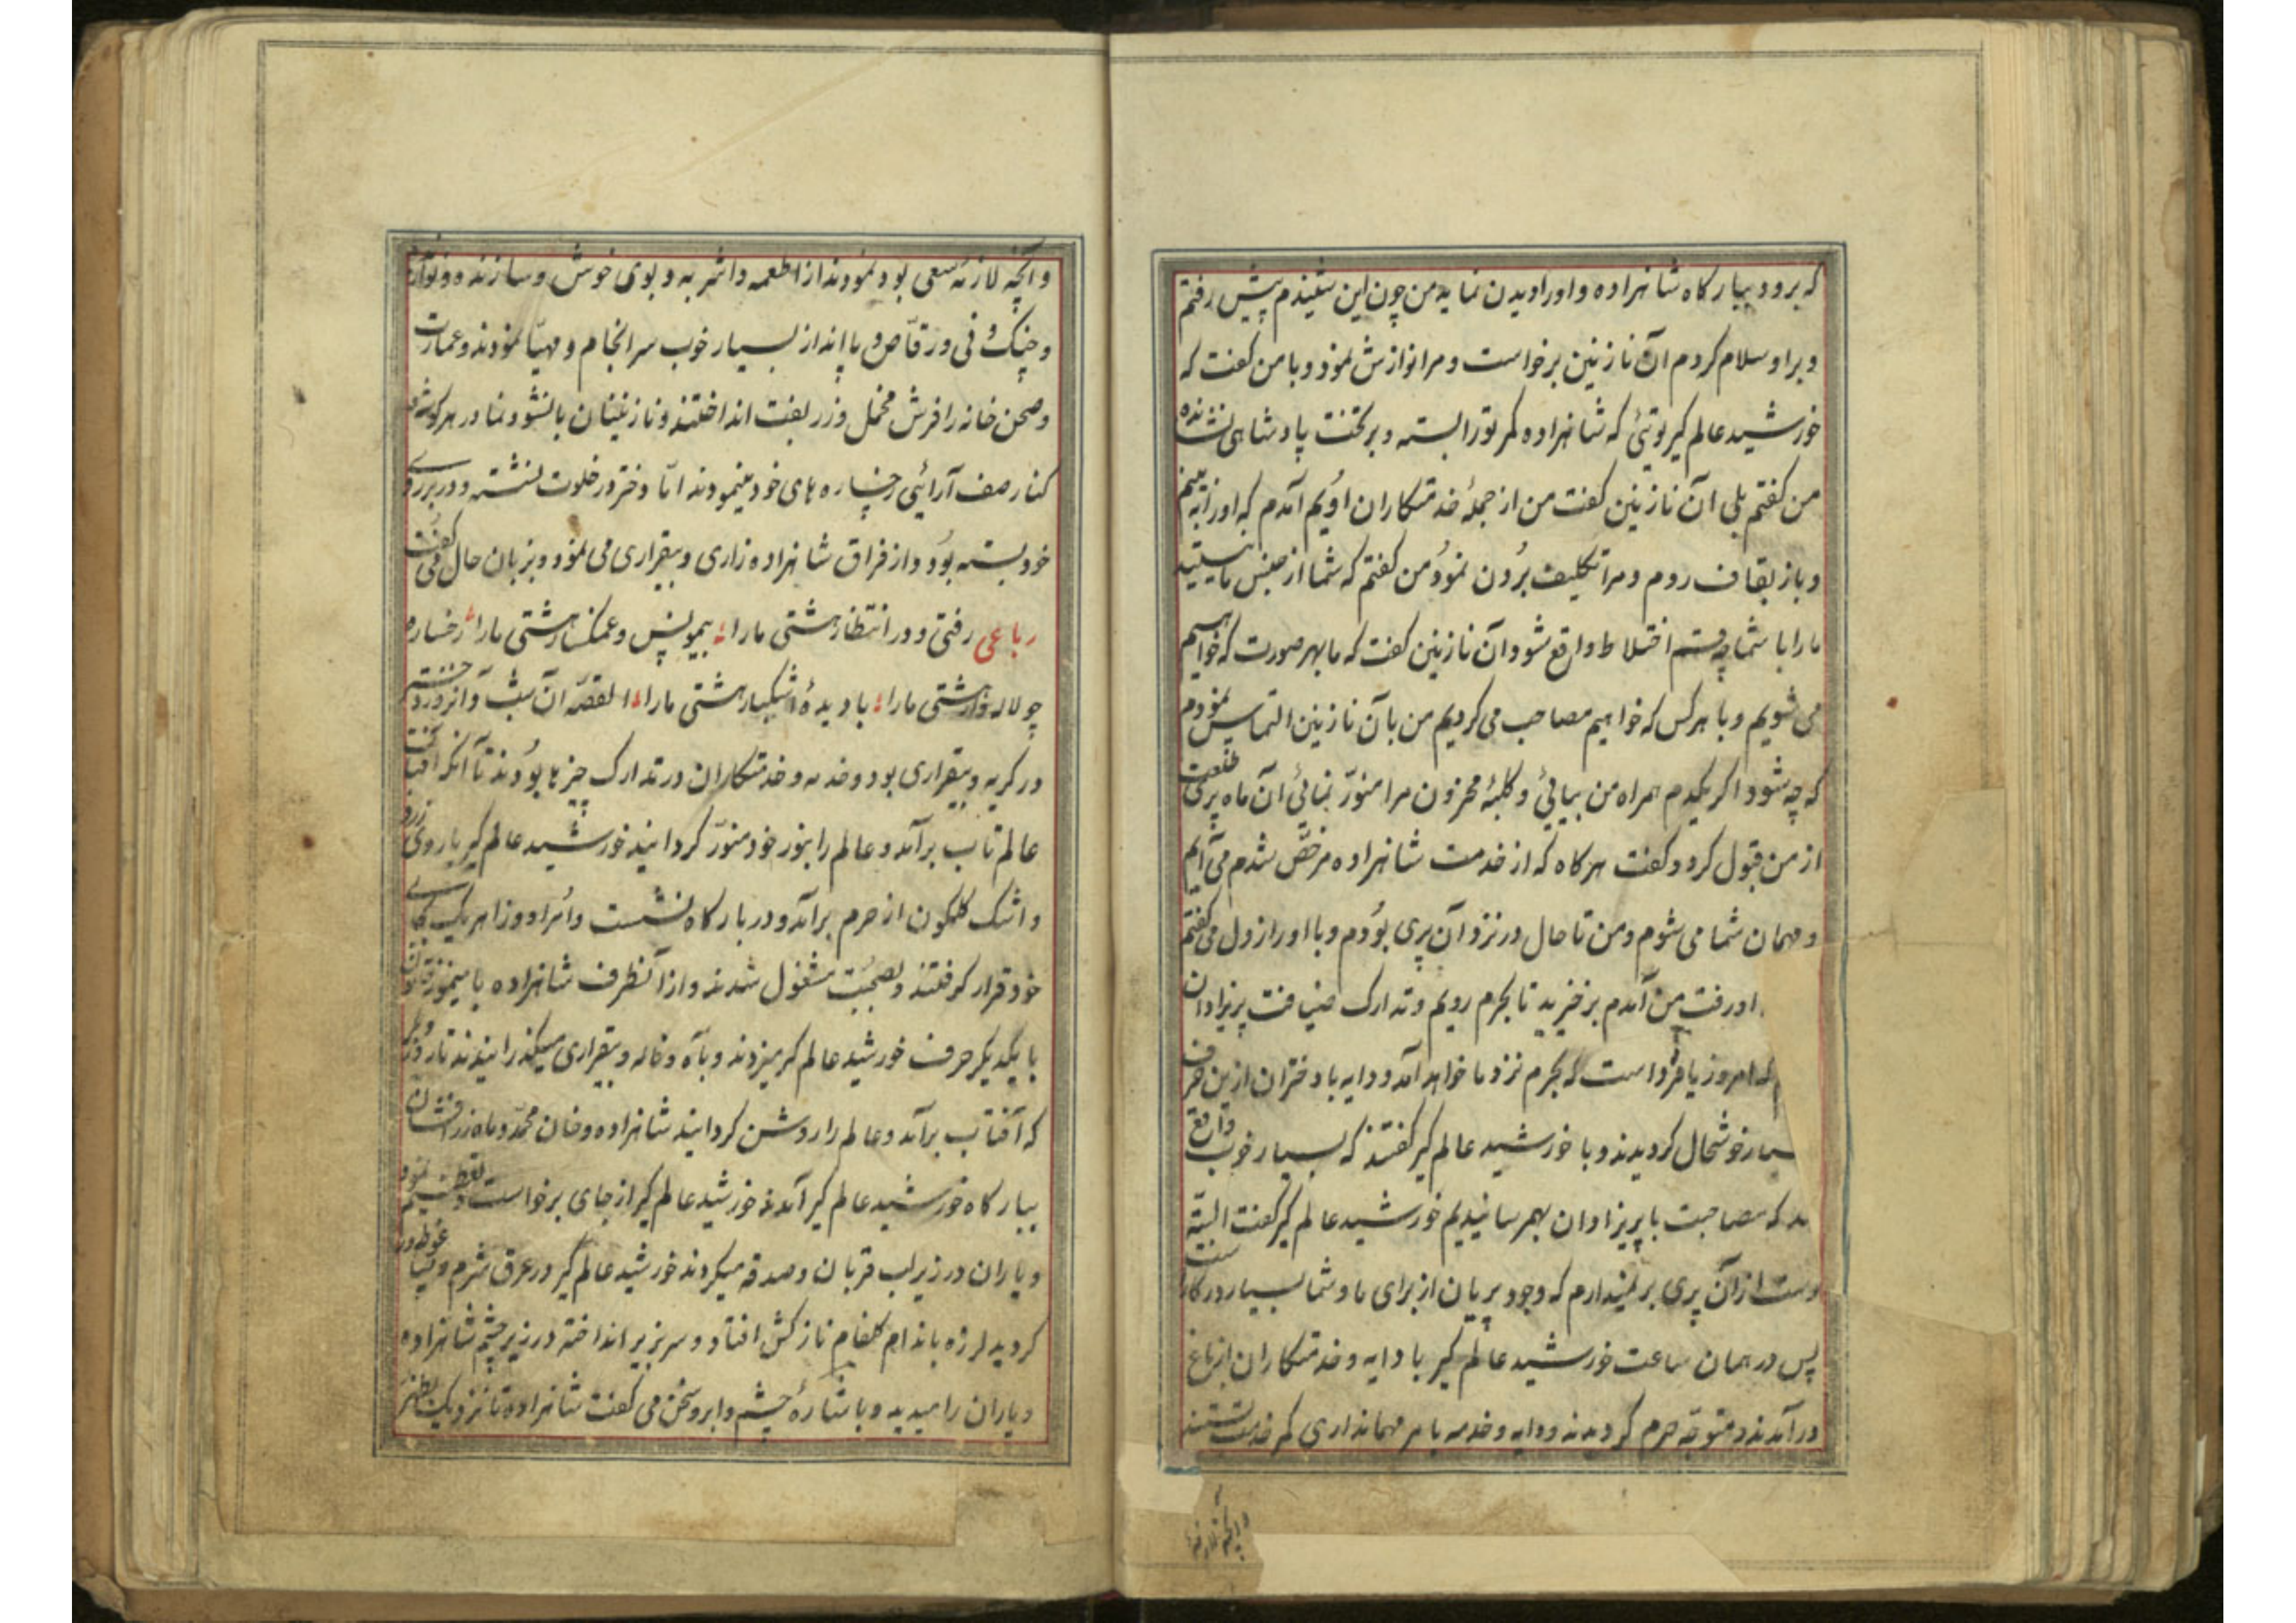 که برود ببارکاه شاهزاده و اورا دیدن نماید من چون این شنیدم پیش رفتم
و براو سلام کردم آن نازنین برخواست و مرا نوازش نمود و با من کفت که
خورشید عالم کیر توئی که شاهزاده کمر تورا بسته و برتخت پادشاهی نشانده
من کفتم بلی آن نازنین کفت من از جملهٔ خدمتکاران اویم آمدم که اورا به بینم
و باز بقاف روم و مرا تکلیف بردن نمود من کفتم که شما از جنس ما نیستید
مارا با شما چه قسم اختلاط واقع شود آن نازنین کفت که ما بهر صورت که خواهیم
می شویم و با هرکس که خواهیم مصاحب می کردیم من بآن نازنین التماس نمودم
که چه شود اکر یکدم همراه من بیائی و کلبهٔ محزون مرا منوّر نمائی آن ماه پری طلعت
از من قبول کرد و کفت هرکاه که از خدمت شاهزاده مرخّص شدم می آیم
و مهمان شما می شوم و من تا حال در نزد آن پری بودم و با او راز دل می کفتم
او رفت من آمدم برخیزید تا بحرم رویم و تدارک ضیافت پریزادان
که امروز یا فردا است که بحرم نزد ما خواهد آمد و دایه با دختران ازین حرف
سیار خوشحال کردیدند و با خورشید عالم کیر کفتند که بسیار خوب واقع
که مصاحبت با پریزادان بهمرسانیدیم خورشید عالم کیر کفت البتّه
دست از آن پری برنمیدارم که وجود پریان از برای ما و شما بسیار در کار است
پس در همان ساعت خورشید عالم کیر با دایه و خدمتکاران از باغ
درآمدند و متوجّه حرم کردیدند و دایه و خدمه بامر مهمانداری کمر خدمت بستند
وآنچه لازمه
وآنچه لازمهٔ سعی بود نمودند از اطعمه و اشربه و بوی خوش و سازنده و نوازنده
و چنک و نی و رقّاص و پا انداز بسیار خوب سرانجام و مهیّا نمودند و عمارت
و صحن خانه را فرش مخمل و زربفت انداختند و نازنینان با نشو و نما در هر کوشه و
کنار صف آرائی رخساره های خود مینمودند امّا دختر در خلوت نشسته و در بر روی
خود بسته بود و از فراق شاهزاده زاری و بیقراری می نمود و بزبان حال می کفت
رباعی رفتی و در انتظار هشتی مارا بیمونس و غمکسار هشتی مارا رخساره
چو لاله زار هشتی مارا با دیدهٔ اشکبار هشتی مارا القصّه آن شب و آنروز دختر
در کریه و بیقراری بود و خدمه و خدمتکاران در تدارک چیزها بودند تا آنکه آفتاب
عالم تاب برآمد و عالم را بنور خود منوّر کردانید خورشید عالم کیر با روی زرد
و اشک کلکون از حرم برآمد و در بارکاه نشست و امرا و وزرا هر یک بجای
خود قرار کرفتند و بصحبت مشغول شدند و از آنطرف شاهزاده
با یکدیکر حرف خورشید عالم کیر میزدند و بآه و ناله و بیقراری میکذرانیدند تا روز دیکر
که آفتاب برآمد و عالم را روشن کردانید شاهزاده و خان محمّد و ماه زرافشان
ببارکاه خورشید عالم کیر آمدند خورشید عالم کیر از جای برخواست و تعظیم نمود
و یاران در زیر لب قربان و صدقه میکردند خورشید عالم کیر در عرق شرم و حیا غوطه ور
کردید لرزه باندام کلفام نازکش افتاد و سر بزیر انداخته در زیر چشم شاهزاده
و یاران را میدید و با اشارهٔ چشم و ابرو سخن می کفت شاهزاده تا نزدیک